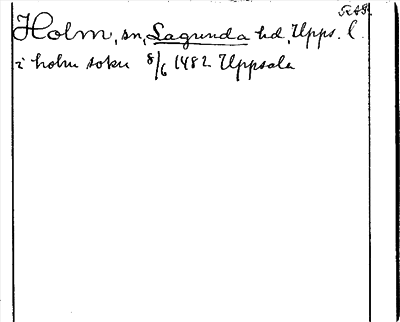 RAP.
Holm, sn, Lagunda hd, Upps. l.
i holm sokn 8/6 1482 Uppsala